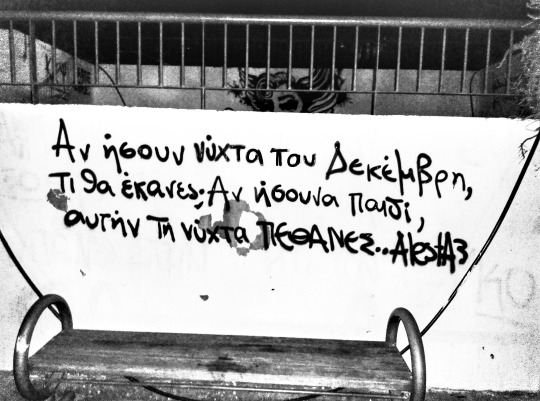 Αν ήσουν νύχτα του Δεκέμβρη,
Τι θα έκανες; Αν ήσουνα παιδί,
αυτήν τη νύχτα ΠΕΘΑΝΕΣ...AlestA3